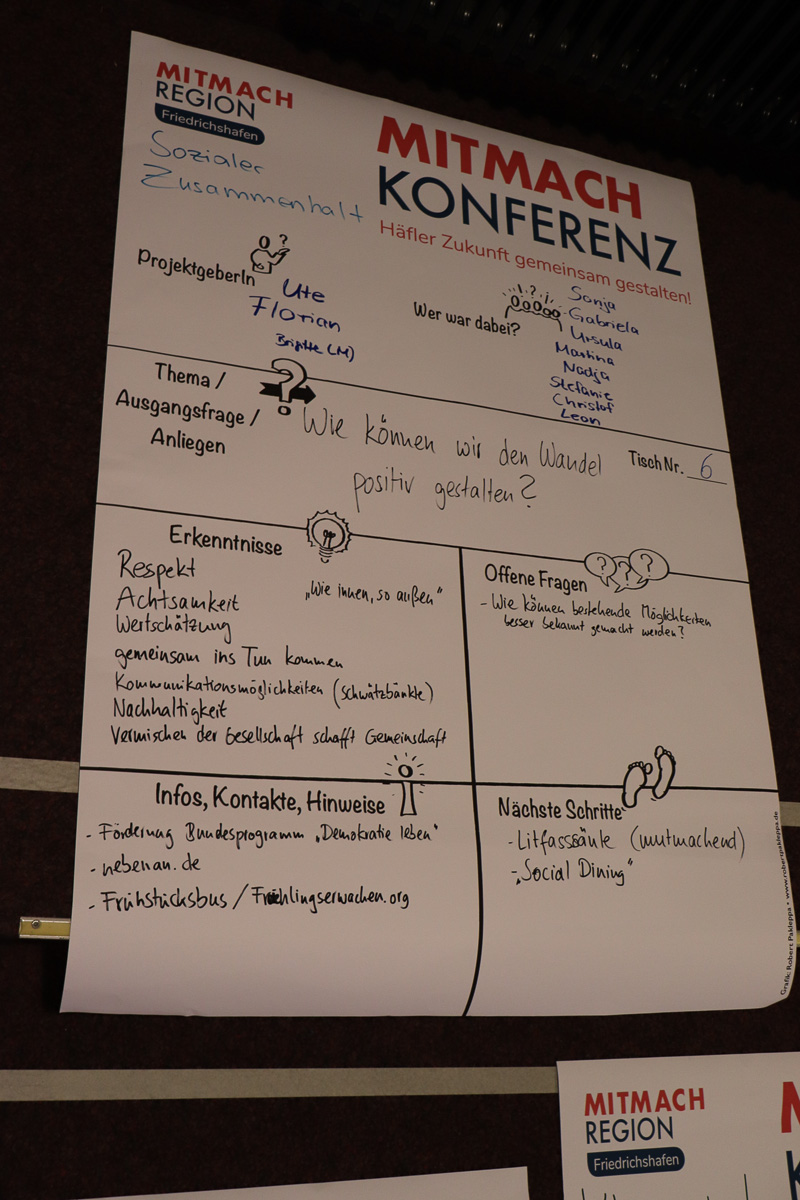 MITMACH
REGION
Friedrichshafen
Sozialer
Zusammenhalt
MITMACH
KONFERENZ
Häfler Zukunft gemeinsam gestalten!
ProjektgeberIn
Ute
Florian
Brigitte (M)
Wer war dabei?
Sonja
Gabriela
Ursula
Martina
Nadja
Stefanie
Christof
Leon
Thema /
Ausgangsfrage /
Anliegen
Wie können wir den Wandel
positiv gestalten?
Tisch Nr. 6
Erkenntnisse
Respekt
Achtsamkeit
Wertschätzung
gemeinsam ins Tun kommen
Kommunikationsmöglichkeiten (Schwätzbänkle)
Nachhaltigkeit
Vermischen der Gesellschaft schafft Gemeinschaft
„Wie innen, so außen"
Offene Fragen
- Wie können bestehende Möglichkeiten
besser bekannt gemacht werden?
Infos, Kontakte, Hinweise
- Förderung Bundesprogramm „Demokratie leben"
- nebenan.de
- Frühstücksbus / Fruehlingserwachen.org
Nächste Schritte
- Litfasssäule (mutmachend)
- „Social Dining"
Grafik: Robert Pakleppa • www.robertpakleppa.de
MITMACH
REGION
Friedrichshafen